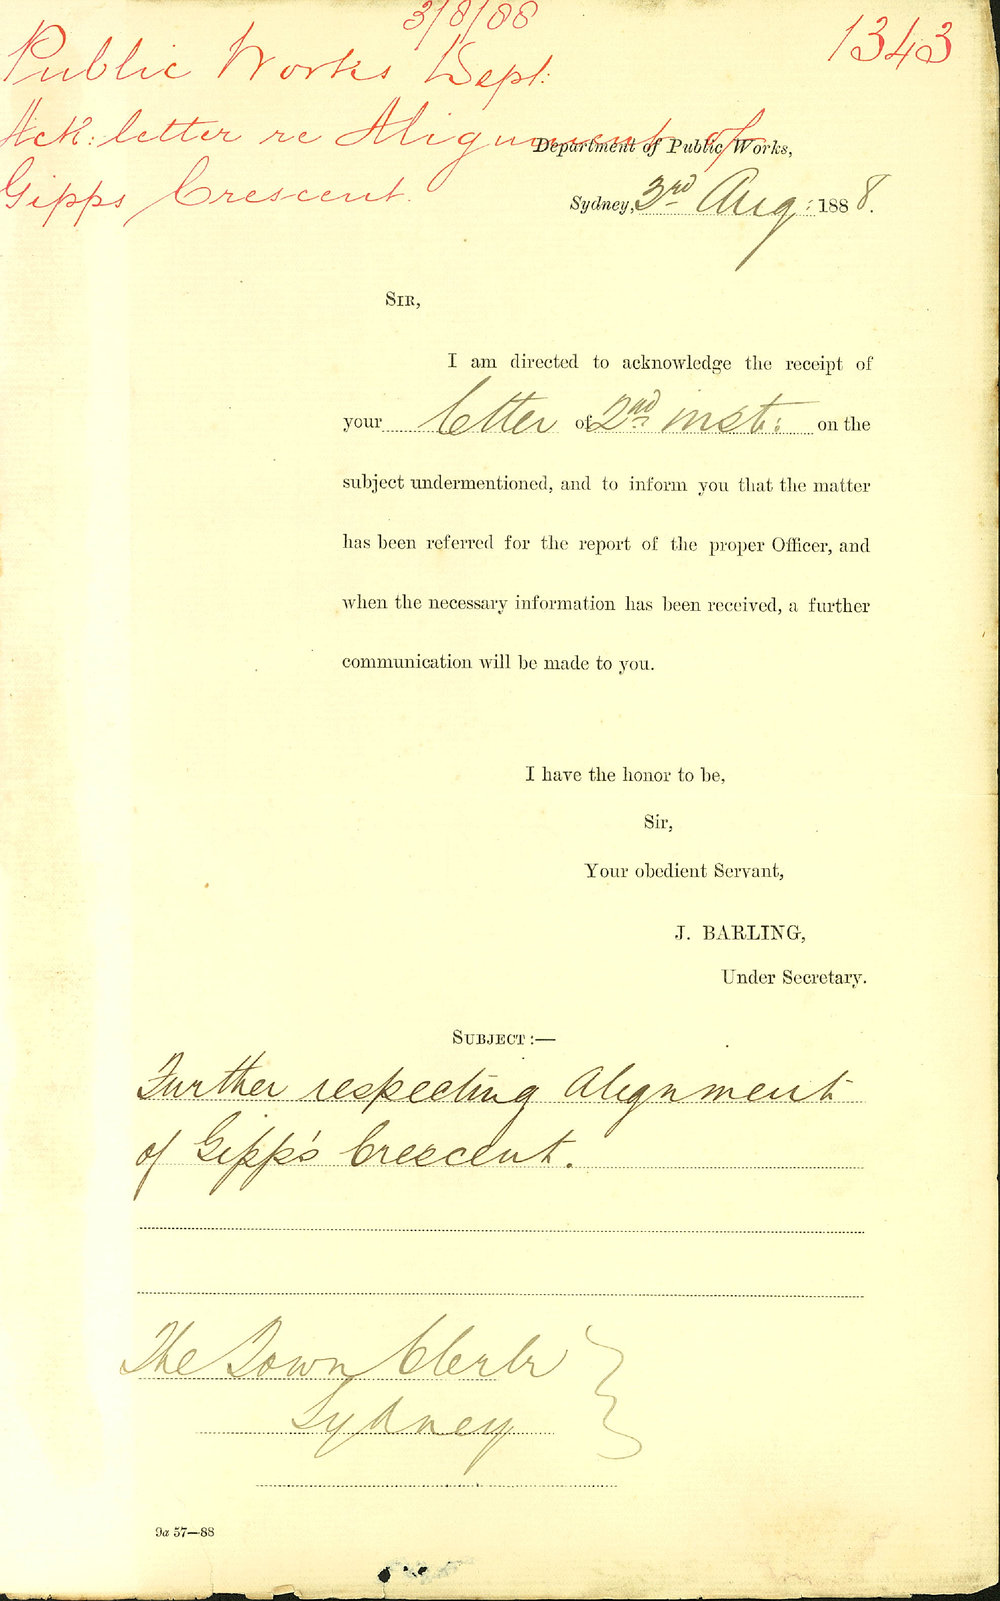 3/8/88
1343
Public Works Dept:
Ack: letter re Alignment of
Gipps Crescent.
Department of Public Works,
Sydney, 3rd Aug: 1888.
SIR,
I am directed to acknowledge the receipt of
your letter of 2nd inst: on the
subject undermentioned, and to inform you that the matter
has been referred for the report of the proper Officer, and
when the necessary information has been received, a further
communication will be made to you.
I have the honor to be,
Sir,
Your obedient Servant,
J. BARLING,
Under Secretary.
SUBJECT:—
Further respecting Alignment
of Gipp's Crescent.
The Town Clerk
Sydney
9a 57—88